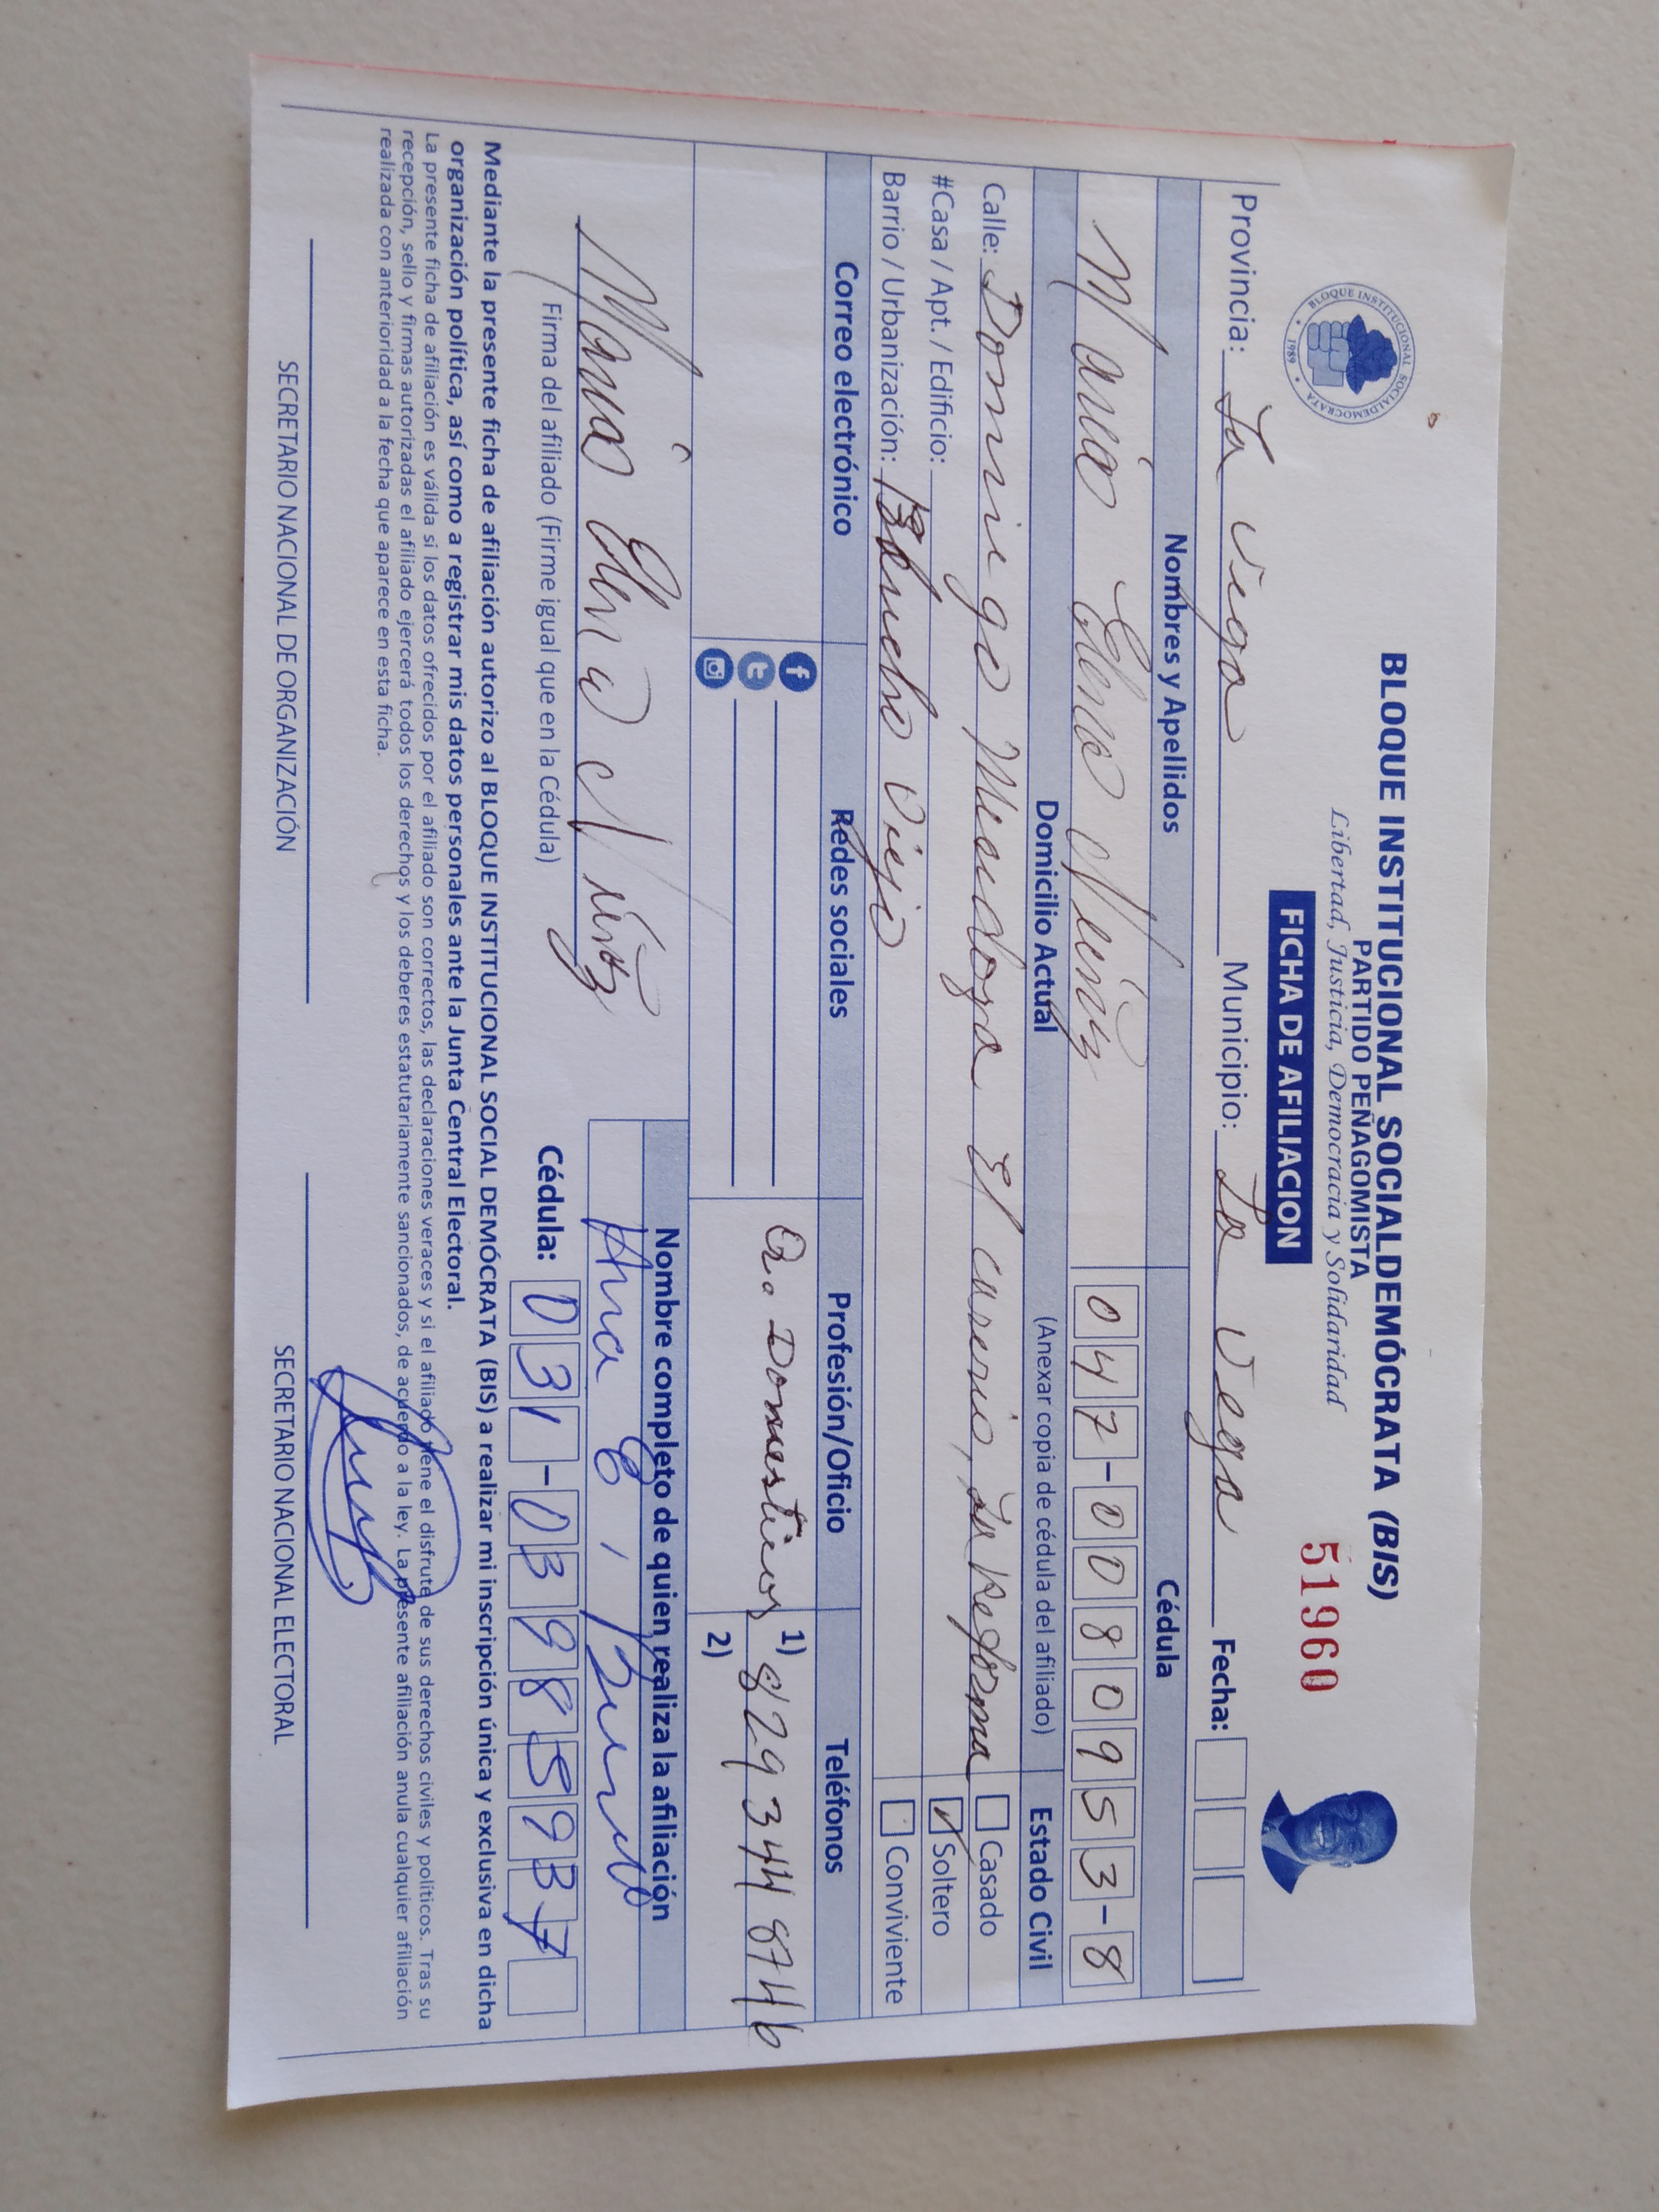 BLOQUE INSTITUCIONAL SOCIALDEMÓCRATA (BIS)
PARTIDO PEÑAGOMISTA
Libertad, Justicia, Democracia y Solidaridad
BLOQUE INSTITUCIONAL SOCIALDEMOCRATA
1989
51960
FICHA DE AFILIACION
Provincia: La Vega Municipio: La Vega Fecha:
Nombres y Apellidos Cédula
Maria Elena Núñez 047-0080953-8
Domicilio Actual (Anexar copia de cédula del afiliado) Estado Civil
Calle: Domingo Mendoza El caserio, La Reforma Casado
#Casa / Apt. / Edificio: Soltero
Barrio / Urbanización: Viejo Conviviente
Correo electrónico Redes sociales Profesión/Oficio Teléfonos
Q. Domesticos 1) 829 344 8746
2)
Maria Elena Núñez
Firma del afiliado (Firme igual que en la Cédula)
Nombre completo de quien realiza la afiliación
Ana
Cédula: 031-03985937
Mediante la presente ficha de afiliación autorizo al BLOQUE INSTITUCIONAL SOCIAL DEMÓCRATA (BIS) a realizar mi inscripción única y exclusiva en dicha
organización política, así como a registrar mis datos personales ante la Junta Central Electoral.
La presente ficha de afiliación es válida si los datos ofrecidos por el afiliado son correctos, las declaraciones veraces y si el afiliado tiene el disfrute de sus derechos civiles y políticos. Tras su
recepción, sello y firmas autorizadas el afiliado ejercerá todos los derechos y los deberes estatutariamente sancionados, de acuerdo a la ley. La presente afiliación anula cualquier afiliación
realizada con anterioridad a la fecha que aparece en esta ficha.
SECRETARIO NACIONAL DE ORGANIZACIÓN SECRETARIO NACIONAL ELECTORAL